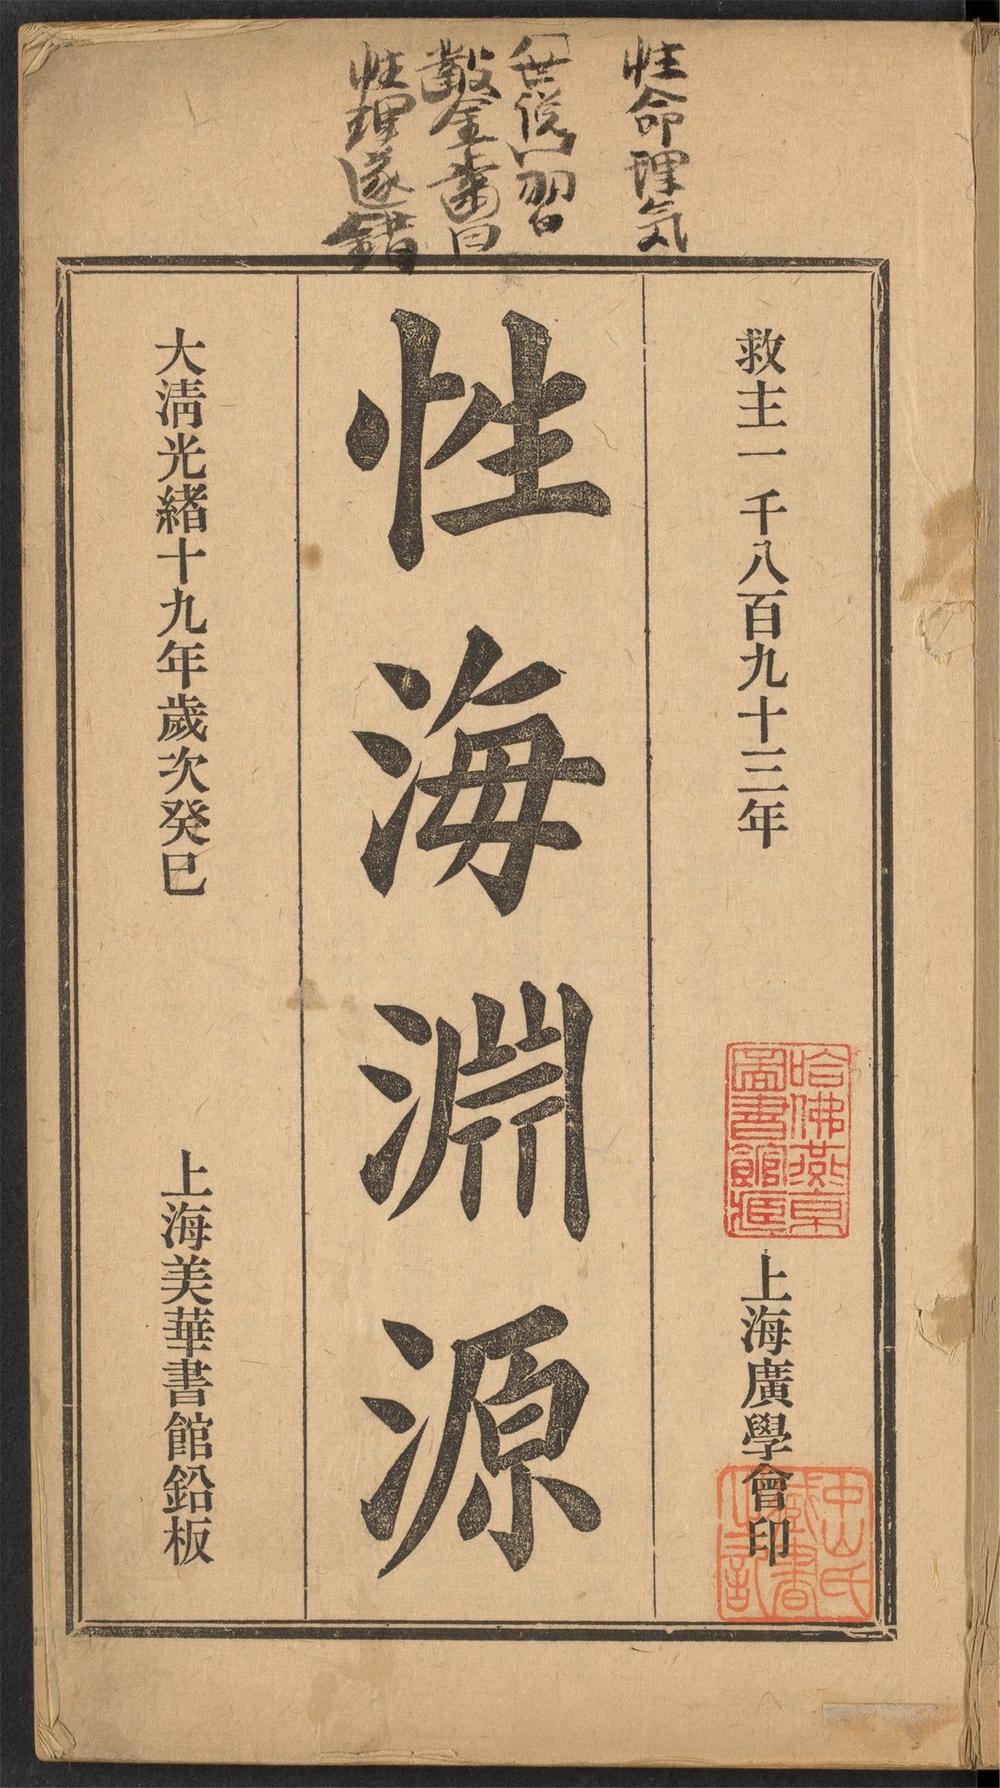 性命理気
世儒習
鑿金
性理遂錯
救主一千八百九十三年
上海廣學會印
性海淵源
大清光緒十九年歲次癸巳
上海美華書館鉛板
哈佛燕京
圖書館藏
中山氏
藏書
之記